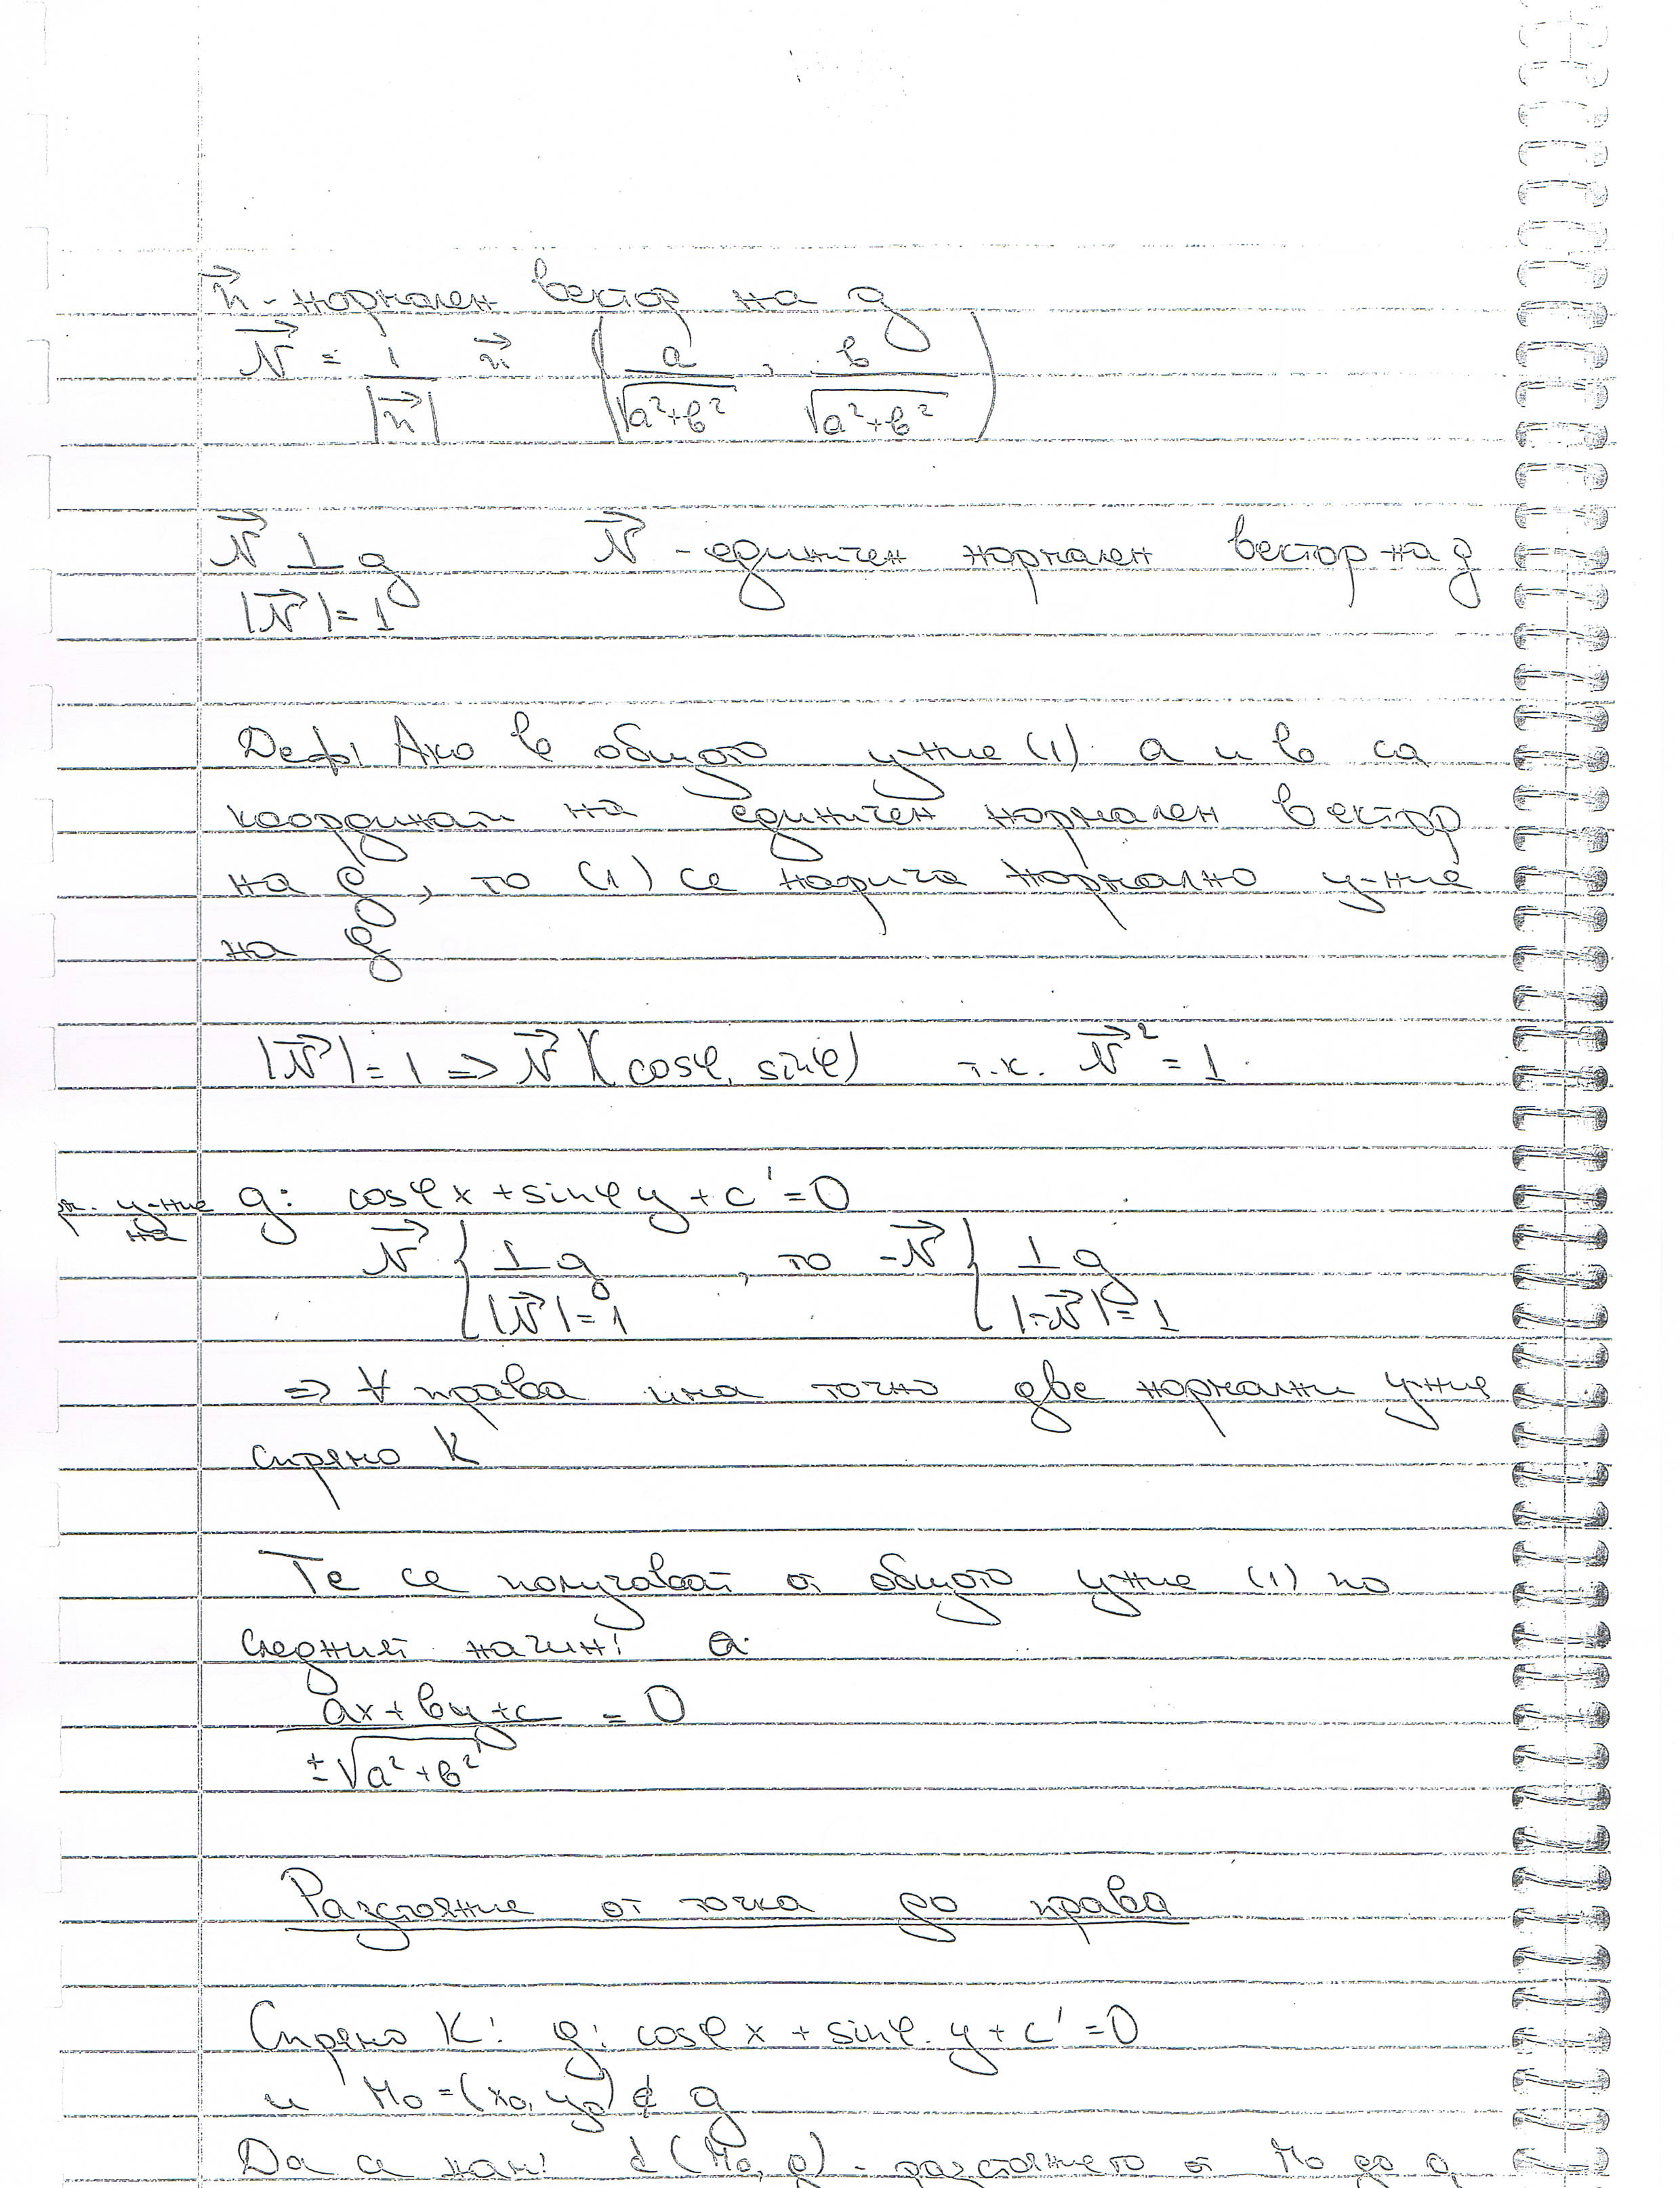 n⃗ - нормален вектор на g
N⃗ = 1/|n⃗| n⃗ (a/√(a²+b²), b/√(a²+b²))
N⃗ ⊥ g N⃗ - единичен нормален вектор на g
|N⃗| = 1
Деф! Ако в общото у-ние (1) a и b са
координати на единичен нормален вектор
на g, то (1) се нарича нормално у-ние
на g
|N⃗| = 1 => N⃗ (cosφ, sinφ) т.к. N⃗² = 1
у-ние на g: cosφ x + sinφ y + c' = 0
N⃗ { ⊥ g, |N⃗| = 1 , то -N⃗ { ⊥ g, |-N⃗| = 1
=> ∀ права има точно две нормални у-ние
спрямо K
Те се получават от общото у-ние (1) по
следния начин: a
(ax + by + c)/(±√(a² + b²)) = 0
Разстояние от точка до права
Спрямо K: g: cosφ x + sinφ. y + c' = 0
и M₀ = (x₀, y₀) ∉ g
Да се нам! d (M₀, g) - разстоянието от M₀ до g